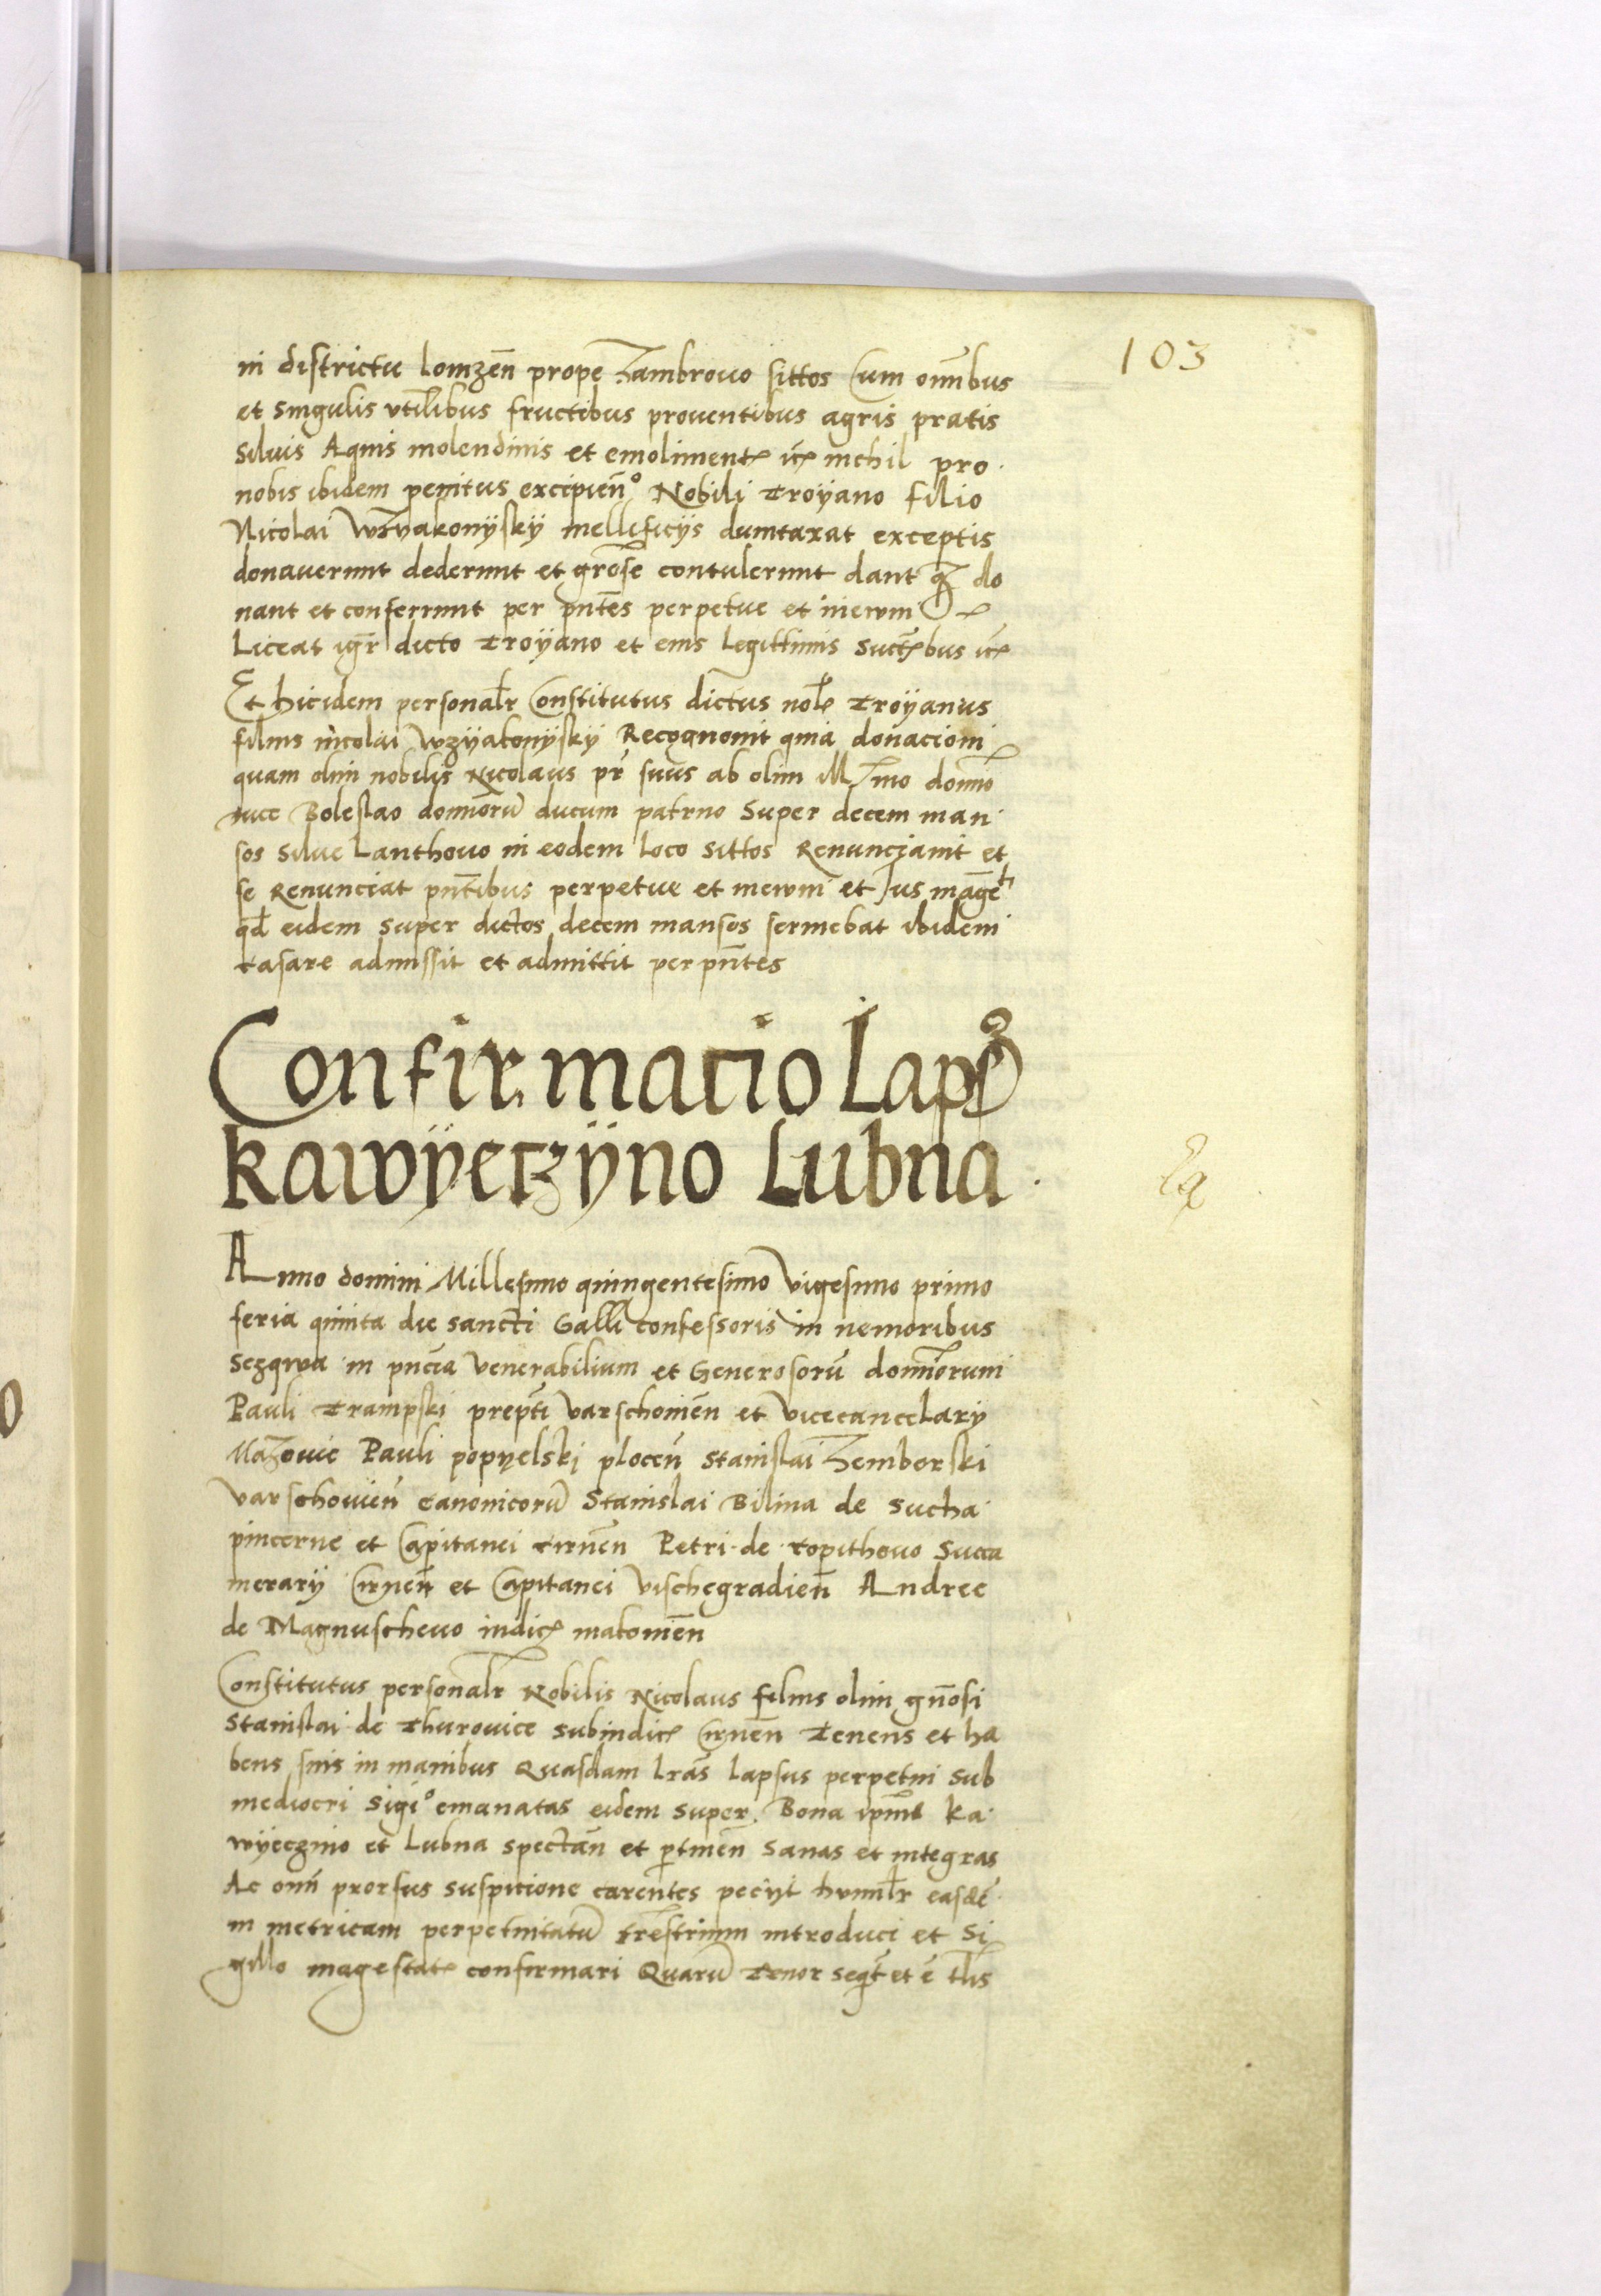 103
in districtu lomzen̄ prope Zambrovo sittos Cum om̄ibus
et singulis vtil̄ibus fructibus proventibus agris pratis
Siluis Aquis molendinis et emolimentꝭ nichil pro
nobis ibidem penitus excipien̄ Nobili Troÿano filio
Nicolai Wzyakonÿskÿ mellificÿs dumtaxat exceptis
donaverunt dederunt et contulerunt dant do
nant et conferrunt per pn̄tes perpetue et in
Liceat igr̄ dicto Troÿano et eius Legittimis
Et hic idem personal̄r Constitutus dictus nob̄le Troÿanus
filius nicolai Wzÿakonÿskÿ Recognouit quia donacioni
quam olim nobilis Nicolaus pr̄ suus ab olim domino
duce Boleslao domīorū ducum patruo Super decem man
sos Silue Lanthovo in eodem loco Sittos Renunciauit et
se Renunciat pn̄tibus perpetue et in ewm et Jus
qd̄ eidem super dictos decem mansos seruiebat ibidem
casare admissit et admittit per pn̄tes
Confirmacio Laps9
kawÿeczÿno Lubna
Anno domini Millesimo quingentesimo Vigesimo primo
feria quinta die sancti Galli confessoris in nemoribus
Sezqwa in pn̄cia Venerabilium et Generosorū domīorum
Pauli Trampski prep̄ti Varschouien̄ et Vicecancelarÿ
Mazouie Pauli popyelski plocen̄ Stanislai Zemborski
Varschouien̄ Canonicorū Stanislai Bilina de Sucha
pincerne et Capitanei Cirnen̄ Petri de Copithovo Succa
merarÿ Cirnen̄ et Capitanei Vischegradien̄ Andree
de Magnuschevo iudicꝭ makouien̄
Constitutus personal̄r Nobilis Nicolaus filius olim gn̄osi
Stanislai de Thurovice Subiudicꝭ Cirnen̄ Tenens et ha
bens suis in manibus Quasdam lr̄as lapsus perpetui Sub
mediocri Sigi° emanatas eidem super Bona ip̄ius ka
wÿeczino et Lubna spectan̄ et p̱tinen̄ Sanas et integras
Ac om̄i prorsus suspicione carentes peciÿt humil̄r easdē
in metricam perpetuitatū trestrium introduci et Si
gillo magestatꝭ confirmari Quarū Tenor seqt̄ et ē tl̄is